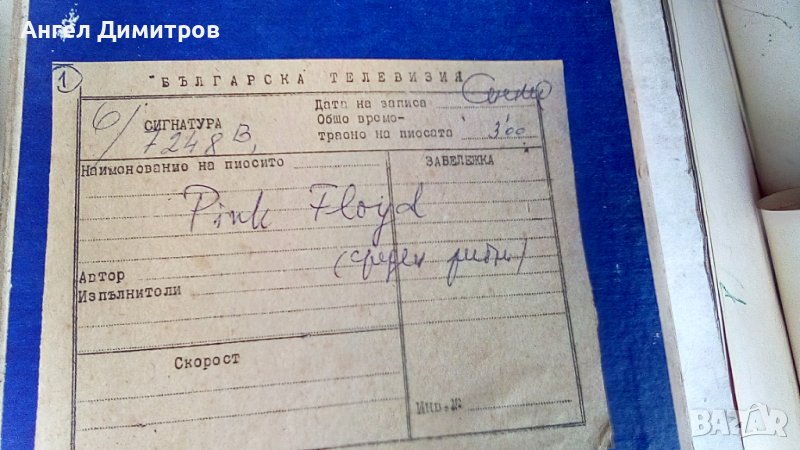 Ангел Димитров
1 "БЪЛГАРСКА ТЕЛЕВИЗИЯ
6/ СИГНАТУРА
7248 В,
Дата на записа
Общо времо-
траоно на пиосата 3'00
Наимонованио на пиосито
ЗАБЕЛЕЖКА
Pink Floyd
(среден ритм)
Автор
Изпълнитоли
Скорост
Инв.№
BAZAR